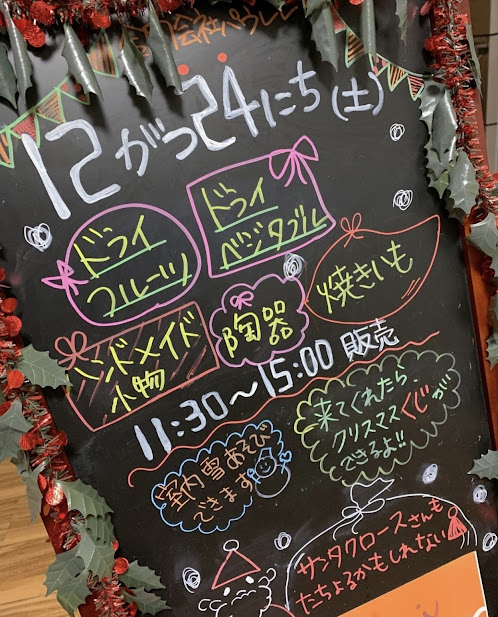 会社パウレ
12がつ24にち(土)
ドライ
フルーツ
ドライ
ベジタブル
焼きいも
陶器
ハンドメイド
小物
11:30～15:00 販売
来てくれたら、
クリスマスくじが
できるよ!!
室内雪あそび
できます
サンタクロースさんも
たちよるかもしれない